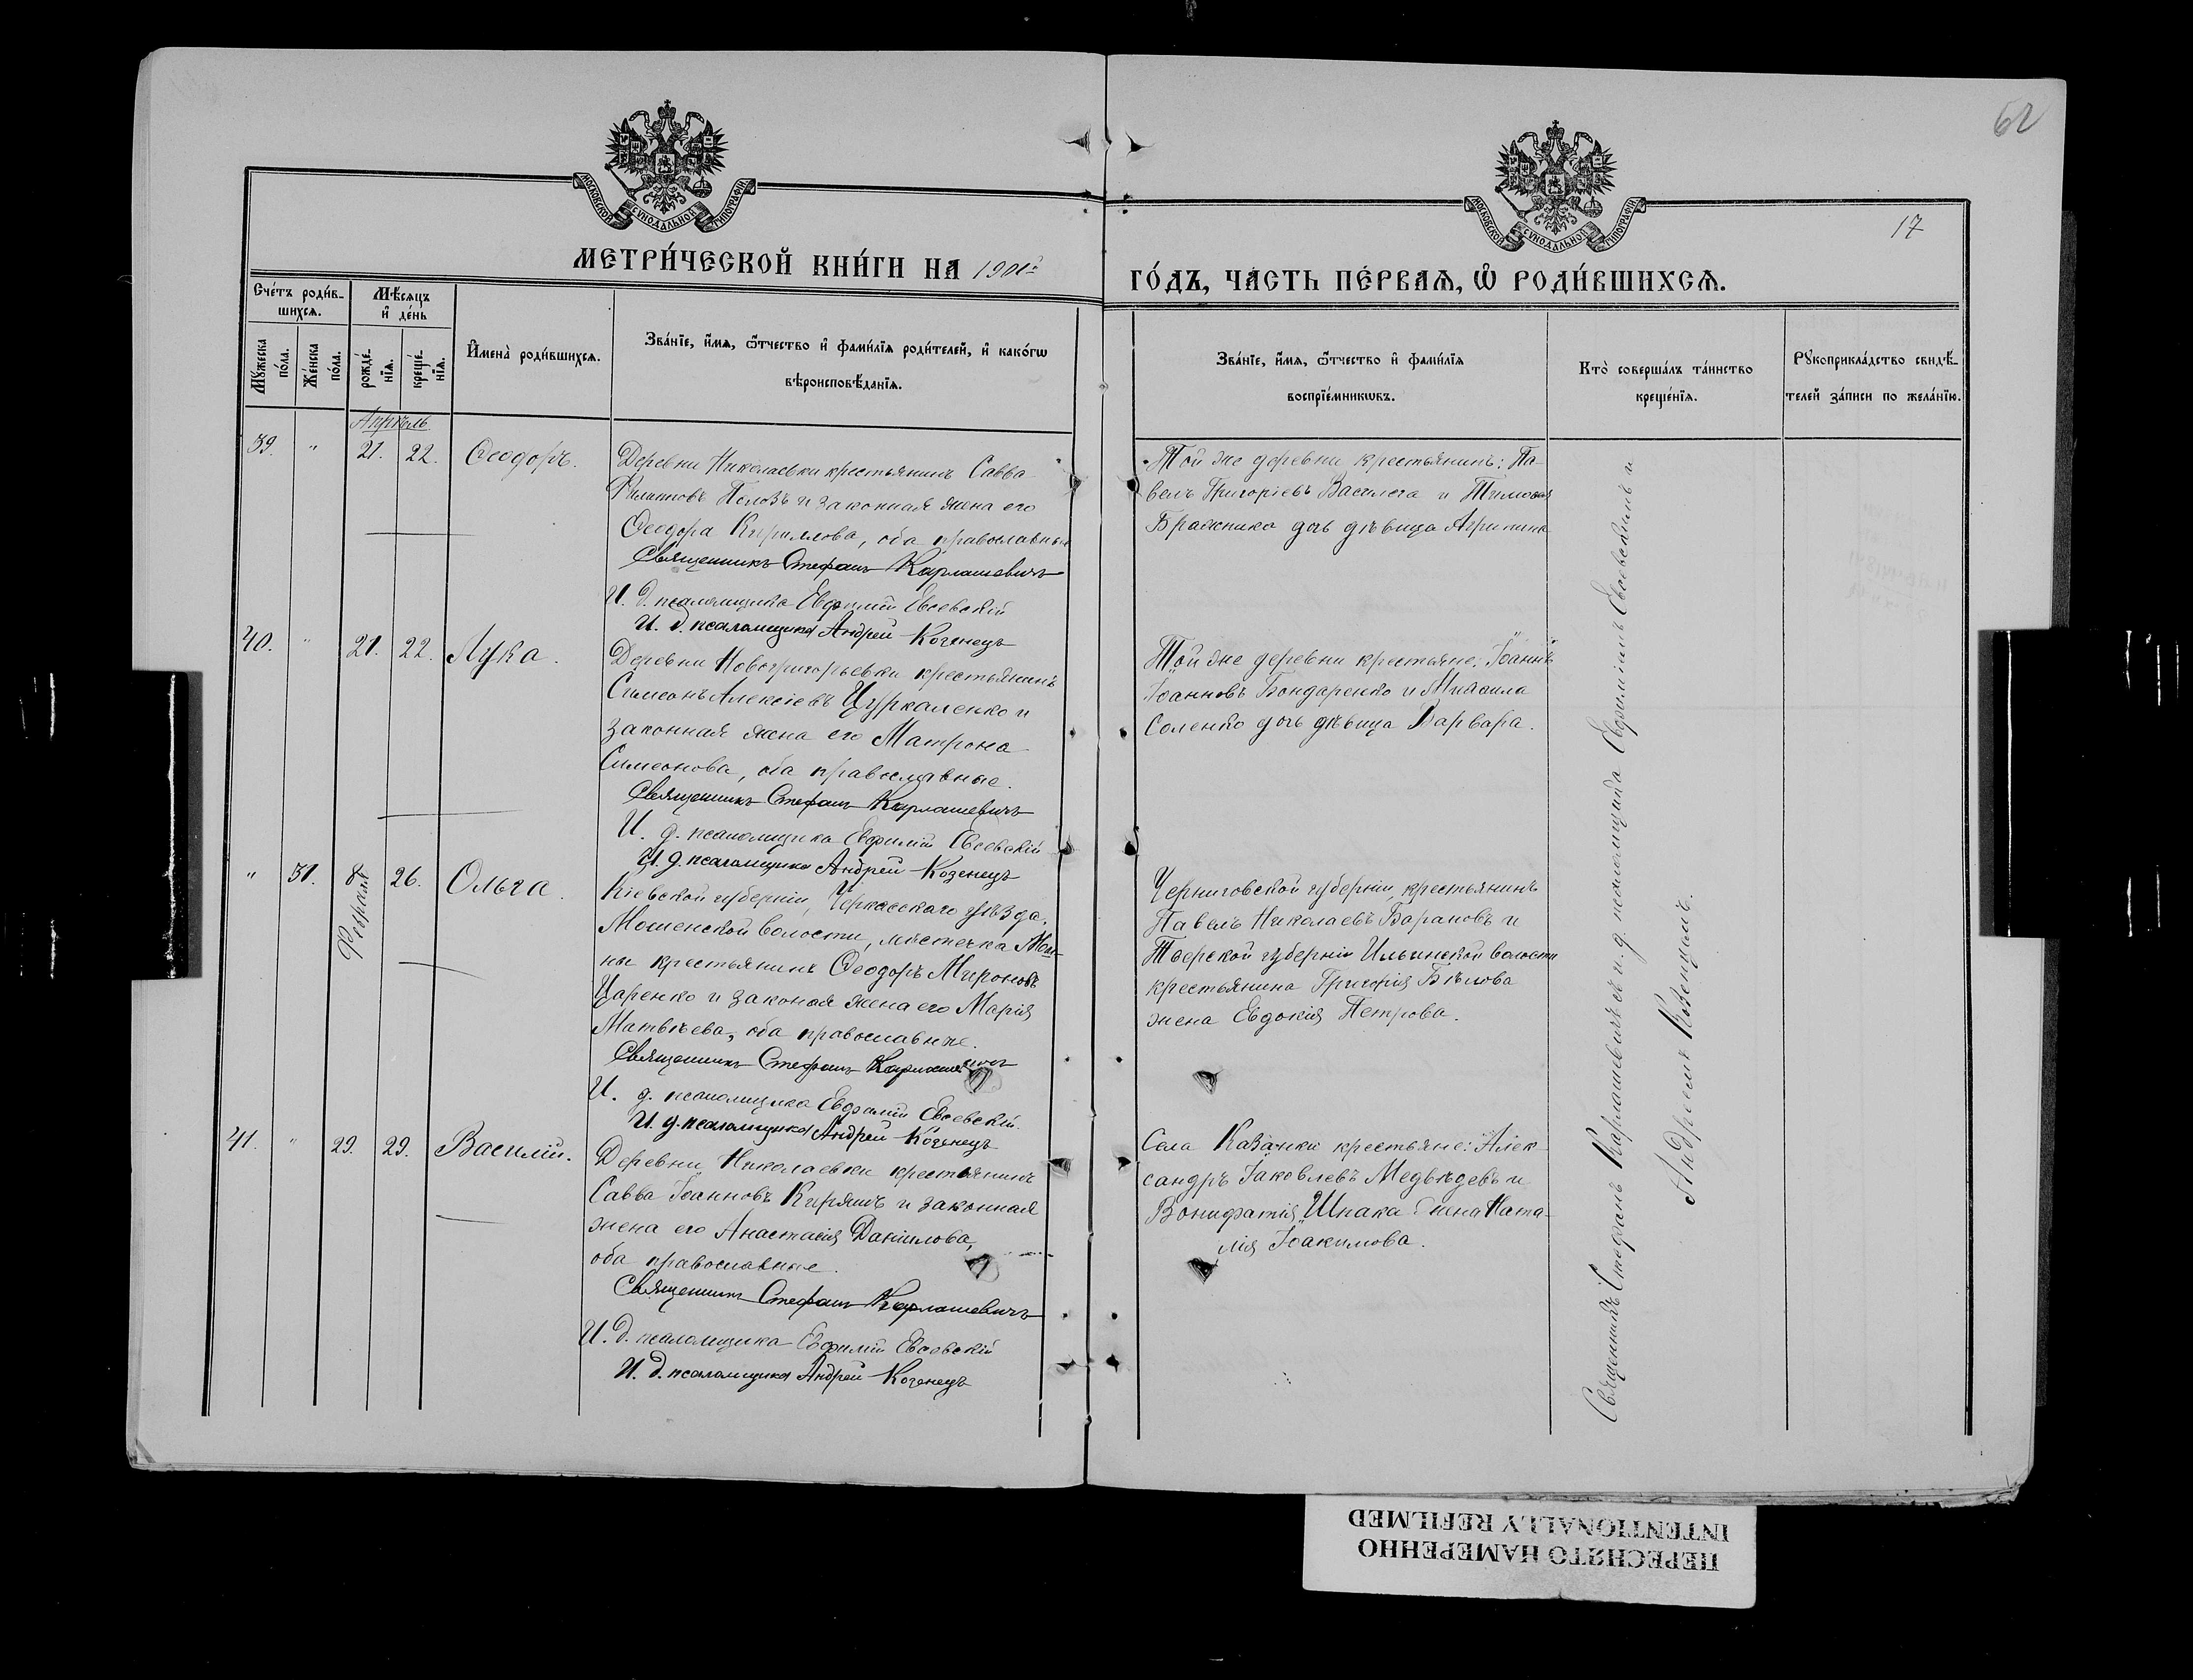 62
17
МОСКОВСКОЙ СѴНОДАЛЬНОЙ ТИПОГРАФІИ.
МОСКОВСКОЙ СѴНОДАЛЬНОЙ ТИПОГРАФІИ.
МЕТРИ́ЧЕСКОЙ КНИ́ГИ НА 1901й
ГО́ДЪ, ЧА́СТЬ ПЕ́РВАѦ, Ѡ҆ РОДИ́ВШИХСѦ.
Сче́тъ роди́в-
шихсѧ.
Мѣ́сѧцъ
и҆ де́нь
Мꙋ́жеска
по́ла.
Же́нска
по́ла.
рожде́-
нїѧ.
креще́-
нїѧ.
И҆мена̀ роди́вшихсѧ.
Зва́нїе, и҆́мѧ, ѻ҆́тчество и҆ фами́лїѧ роди́телей, и҆ како́гѡ
вѣроисповѣ́данїѧ.
Зва́нїе, и҆́мѧ, ѻ҆́тчество и҆ фами́лїѧ
воспрїе́мникѡвъ.
Кто̀ соверша́лъ та́инство
креще́нїѧ.
Рꙋкоприкла́дство свидѣ́-
телей за́писи по жела́нїю.
Апрѣль
39. " 21. 22. Ѳеодоръ.
Деревни Николаевки крестьянинъ Савва
Филиповъ Полозъ и законная жена его
Ѳеодора Кириллова, оба православные
Священникъ Стефанъ Карлашевичъ
И. д. псаломщика Евфимій Евсевскій
И. д. псаломщика Андрей Козенецъ
Той же деревни крестьянинъ: Па-
велъ Григоріевъ Василега и Тимоѳея
Бражника дочь дѣвица Агрипина
40. " 21. 22. Лука.
Деревни Новогригорьевки крестьянинъ
Симеонъ Алексіевъ Цуркаленко и
законная жена его Матрона
Симеонова, оба православные.
Священникъ Стефанъ Карлашевичъ
И. д. псаломщика Евфимій Евсевскій
И. д. псаломщика Андрей Козенецъ
Той же деревни крестьяне: Іоаннъ
Іоанновъ Бондаренко и Михаила
Соленко дочь дѣвица Варвара.
" 31. 8 Февраля 26. Ольга.
Кіевской губерніи, Черкасскаго уѣзда,
Мошенской волости, мѣстечка Мош-
ны крестьянинъ Ѳеодоръ Мироновъ
Царенко и законая жена его Марія
Матвѣева, оба православные.
Священникъ Стефанъ Карлашевичъ
И. д. псаломщика Евфимій Евсевскій.
И. д. псаломщика Андрей Козенецъ
Черниговской губерніи, крестьянинъ
Павелъ Николаевъ Барановъ и
Тверской губерніи Ильинской волости
крестьянина Григорія Бѣлова
жена Евдокія Петрова.
41. " 29. 29. Василій.
Деревни Николаевки крестьянинъ
Савва Іоанновъ Киряшъ и законная
жена его Анастасія Даніилова,
оба православные.
Священникъ Стефанъ Карлашевичъ
И. д. псаломщика Евфимій Евсевскій
И. д. псаломщика Андрей Козенецъ
Села Казанки крестьяне: Алек-
сандръ Іаковлевъ Медвѣдевъ и
Вонифатія Шпака жена Ната-
лія Іоакимова.
Священникъ Стефанъ Карлашевичъ съ и. д. псаломщика Евфиміемъ Евсевскимъ и
Андреемъ Козенцемъ.
ПЕРЕСНЯТО НАМЕРЕННО
INTENTIONALLY REFILMED